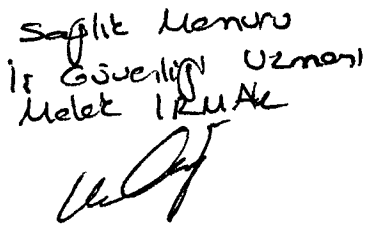 Sağlık Memuru
İş Güvenliği Uzmanı
Melek IRMAK